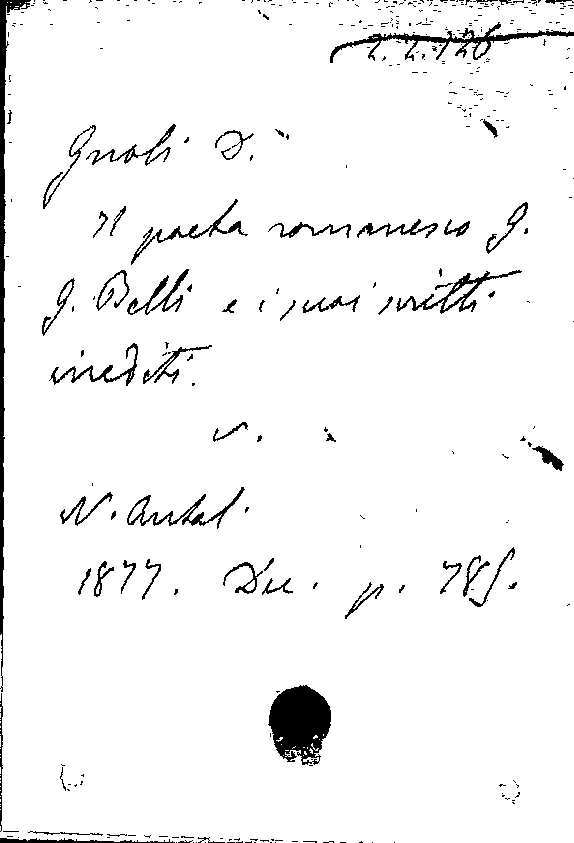 2.2.126
Gnoli D.
Il poeta romanesco G.
G. Belli e i suoi scritti
inediti.
v.
N. Antol.
1877. Dic. p. 785.